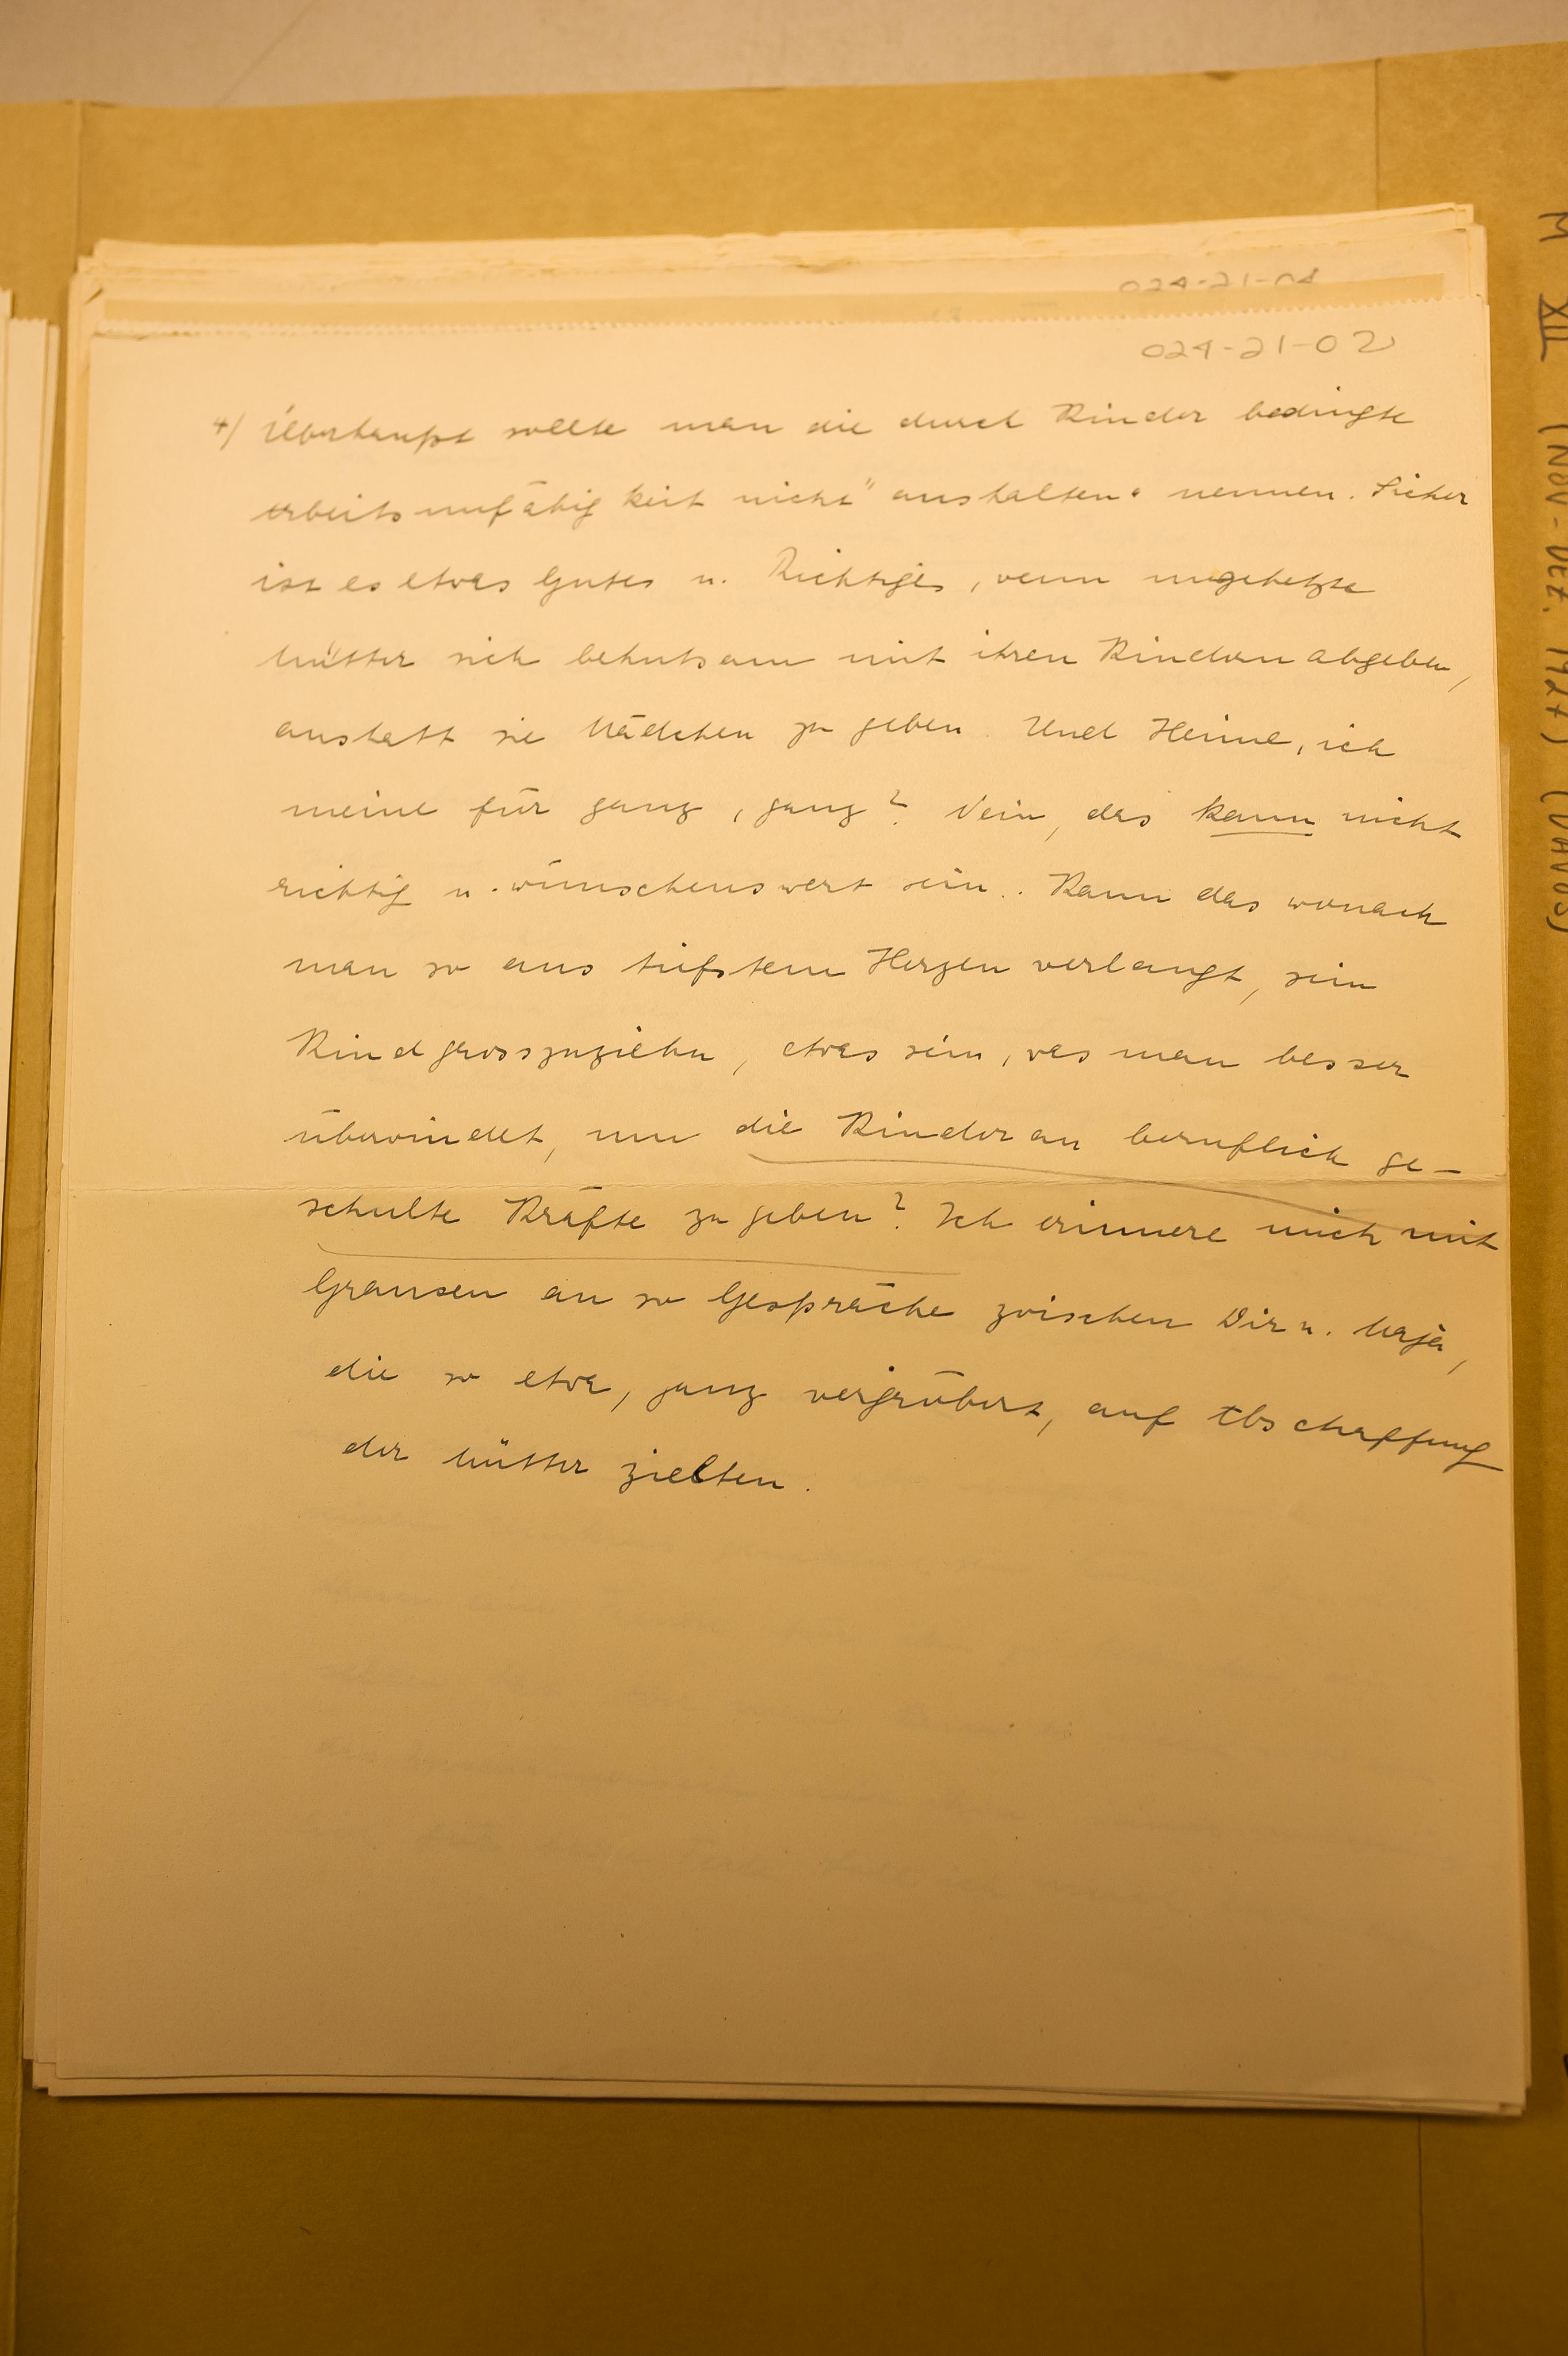 024-21-04
024-21-02
4) Überhaupt sollte man die durch Kinder bedingte
Arbeitsunfähigkeit nicht "aushalten" nennen. Sicher
ist es etwas Gutes u. Richtiges, wenn ungehetzte
Mütter sich behutsam mit ihren Kindern abgeben,
anstatt sie Mädchen zu geben. Und Heime, ich
meine für ganz, ganz? Nein, das kann nicht
richtig u. wünschenswert sein. Kann das wonach
man so aus tiefstem Herzen verlangt, sein
Kind grosszuziehn, etwas sein, was man besser
überwindet, um die Kinder an beruflich ge-
schulte Kräfte zu geben? Ich erinnere mich mit
Grausen an so Gespräche zwischen Dir u. Maja,
die so etwa, ganz vergröbert, auf Abschaffung
der Mütter zielten.
M XII (NOV-DEZ. 1927) (DAVOS)